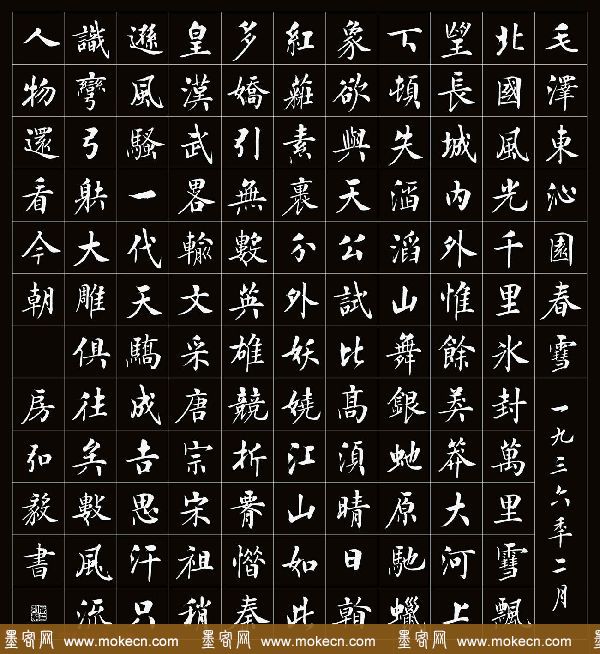 毛澤東沁園春雪 一九三六年二月
北國風光千里冰封萬里雪飄
望長城內外惟餘莽莽大河上
下頓失滔滔山舞銀蛇原馳蠟
象欲與天公試比高須晴日看
紅裝素裹分外妖嬈江山如此
多嬌引無數英雄競折腰惜秦
皇漢武畧輸文采唐宗宋祖稍
遜風騷一代天驕成吉思汗只
識彎弓射大雕俱往矣數風流
人物還看今朝 房弘毅書
墨客网 www.mokecn.com 墨客网 www.mokecn.com 墨客网 www.mokecn.com